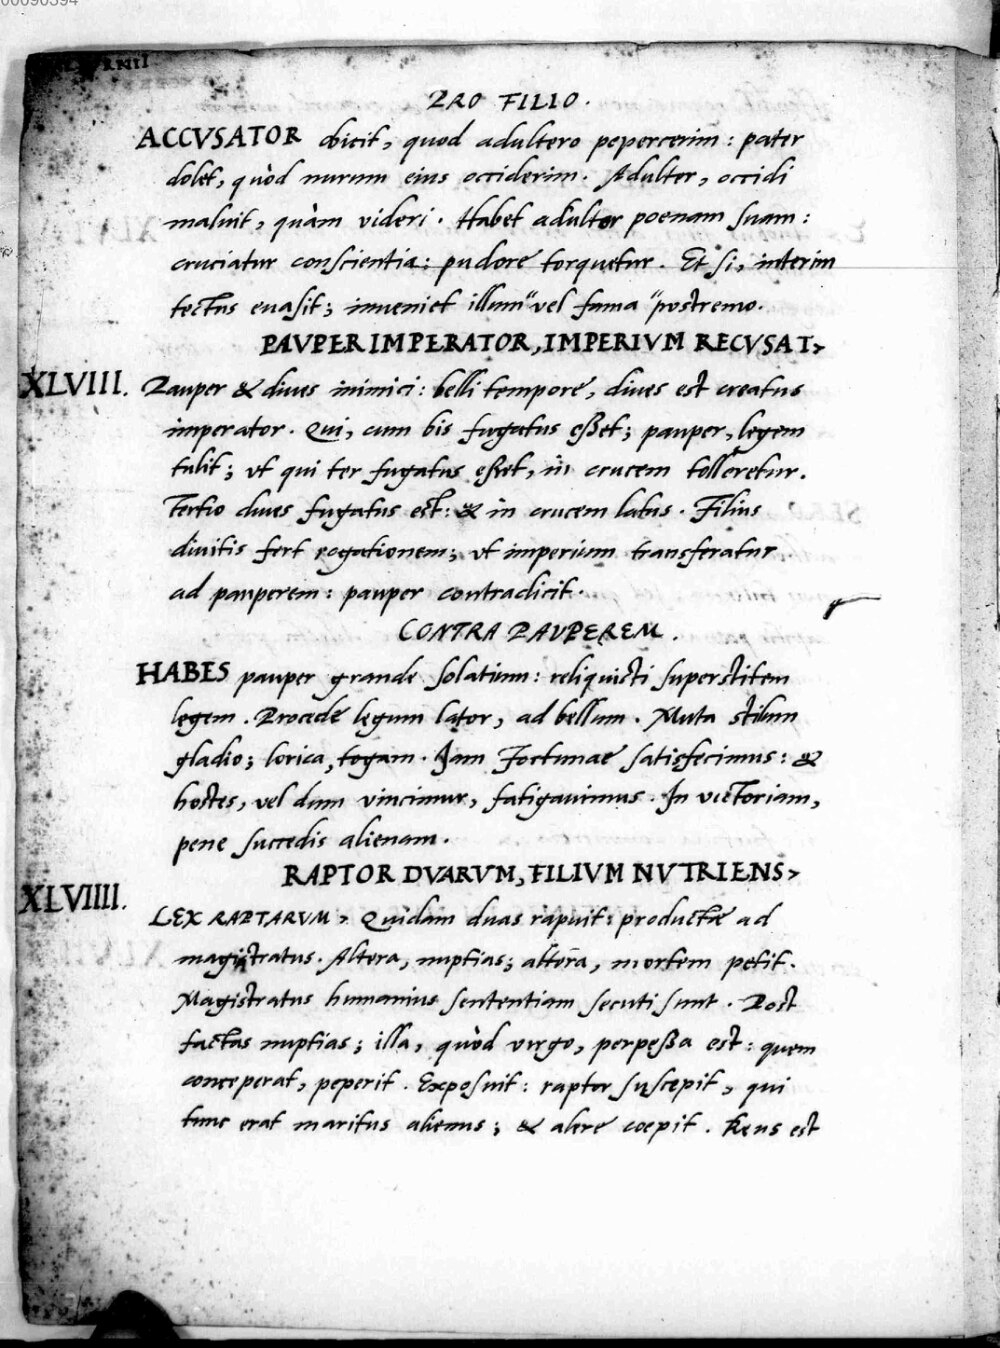 00090394
PRO FILIO.
ACCVSATOR obicit, quod adultero pepercerim: pater
dolet, quòd nurum eius occiderim. Adulter, occidi
maluit, quàm videri. Habet adulter poenam suam:
cruciatur conscientia: pudore torquetur. Et si, interim
tectus euasit; inueniet illum "vel fama "postremo.
PAVPER IMPERATOR, IMPERIVM RECVSAT>
XLVIII. Pauper & diues inimici: belli tempore, diues est creatus
imperator. Qui, cum bis fugatus eßet; pauper, legem
tulit; vt qui ter fugatus eßet, in crucem tolleretur.
Tertio diues fugatus est: & in crucem latus. Filius
diuitis fert rogationem; vt imperium transferatur
ad pauperem: pauper contradicit.
CONTRA PAVPEREM.
HABES pauper grande solatium: reliquisti superstitem
legem. Procede legum lator, ad bellum. Muta stilum
gladio; lorica, togam. Iam Fortunae satisfecimus: &
hostes, vel dum vincimur, fatigauimus. In victoriam,
pene succedis alienam.
RAPTOR DVARVM, FILIVM NVTRIENS>
XLVIIII.
LEX RAPTARVM> Quidam duas rapuit: productæ ad
magistratus. Altera, nuptias; altera, mortem petit.
Magistratus humanius sententiam secuti sunt. Post
factas nuptias; illa, quòd virgo, perpeßa est: quem
conceperat, peperit. Exposuit: raptor suscepit, qui
tunc erat maritus alienus; & alere coepit. Reus est